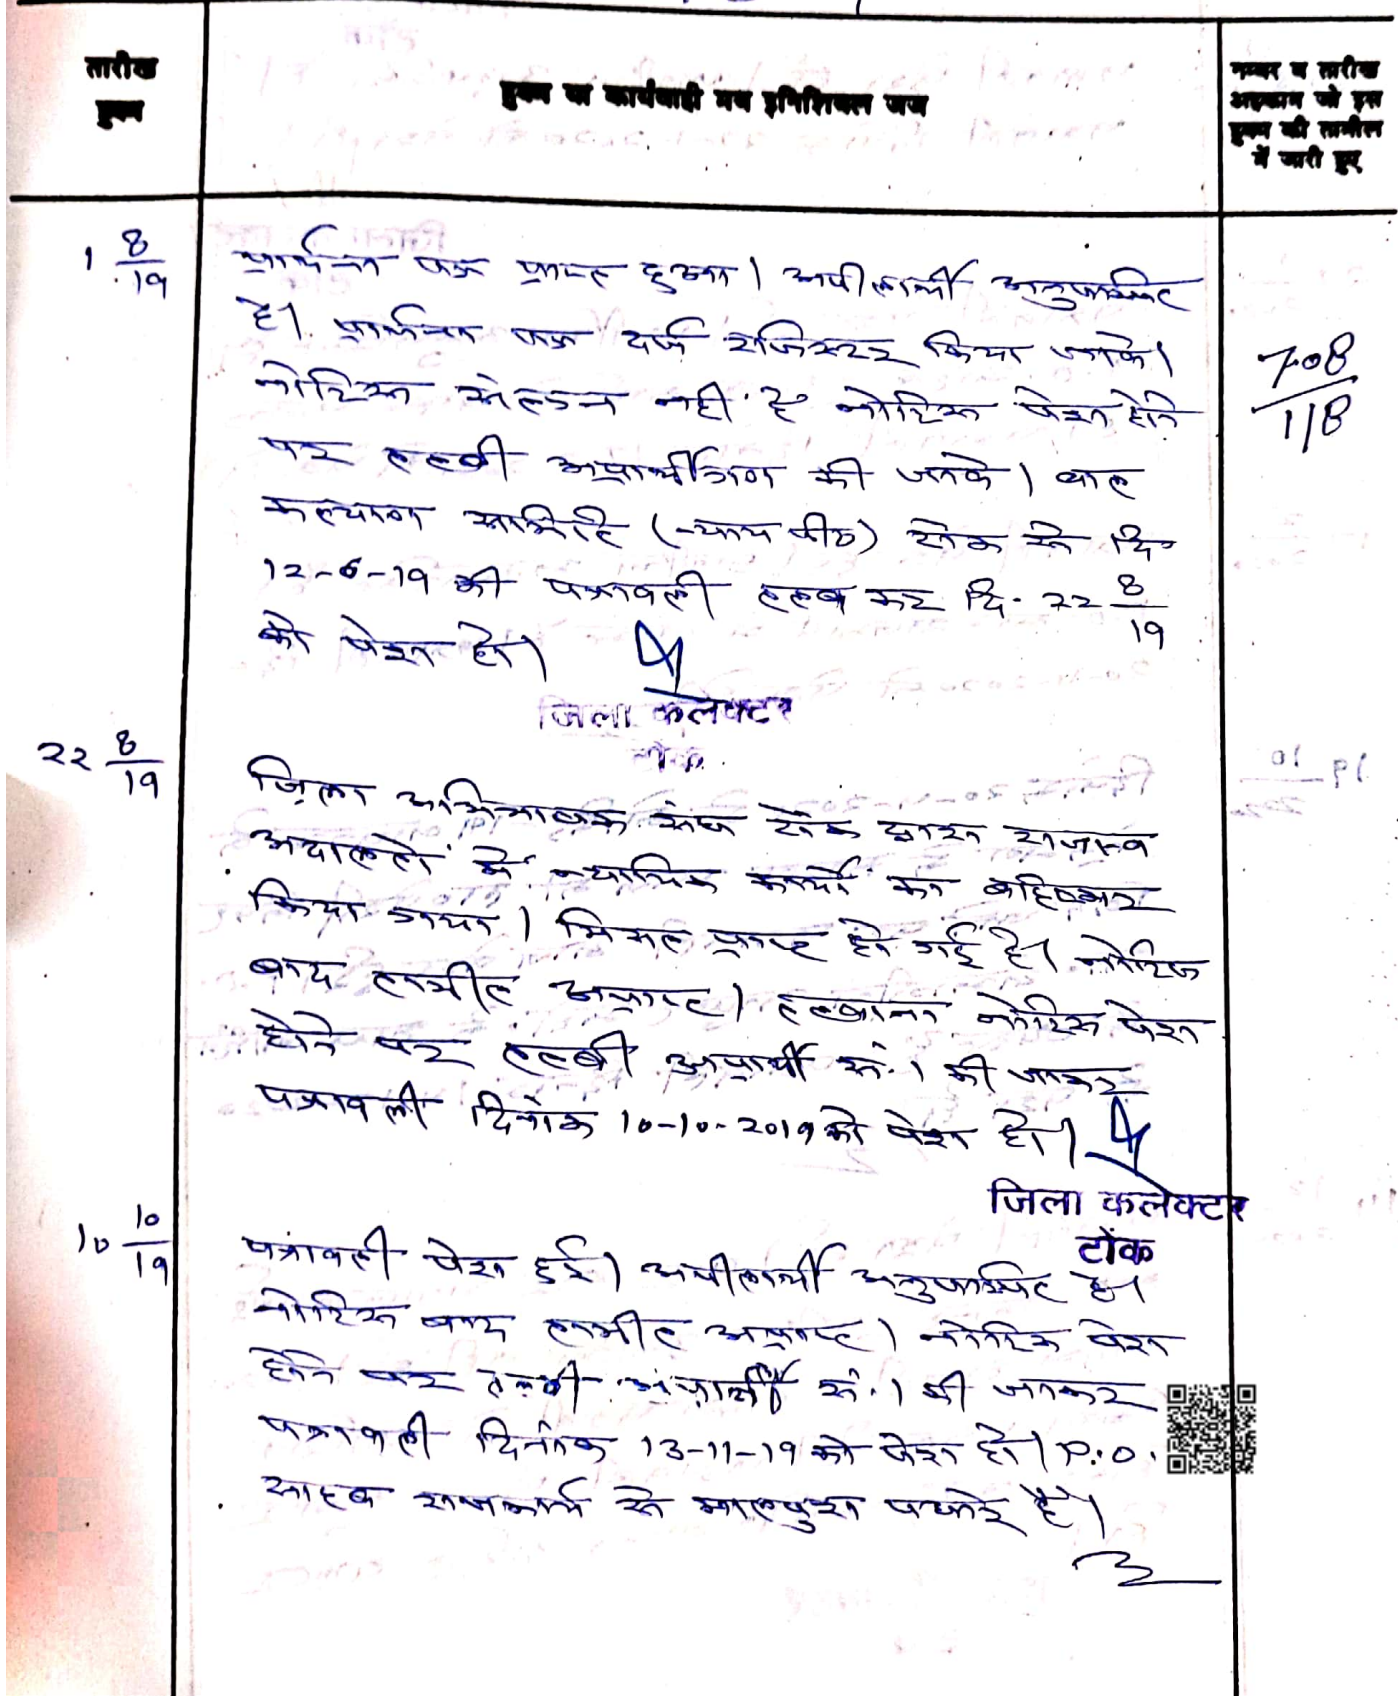 तारीख
हुक्म
हुक्म या कार्यवाही मय इनिशियल जज
नम्बर व तारीख
अहकाम जो इस
हुक्म की तामील
में जारी हुए
1 8/19
प्रार्थना पत्र प्राप्त हुआ। अपीलार्थी अनुपस्थित
है। प्रार्थना पत्र दर्ज रजिस्टर किया जावे।
नोटिस संलग्न नही है नोटिस पेश होने
पर तलबी अप्रार्थीगण की जावे। बाल
कल्याण समिति (न्याय पीठ) टोंक से दि॰
12-6-19 की पत्रावली तलब कर दि. 22 8/19
को पेश हो।
708/1/8
जिला कलेक्टर
टोंक
22 8/19
जिला अभिभाषक संघ टोंक द्वारा राजस्व
अदालतों में न्यायिक कार्यो का बहिष्कार
किया गया। मिसल प्राप्त हो गई है। नोटिस
बाद तामील अप्राप्त। तलबाना नोटिस पेश
होने पर तलबी अप्रार्थी सं. 1 की जाकर
पत्रावली दिनांक 10-10-2019 को पेश हो।
जिला कलेक्टर
टोंक
10 10/19
पत्रावली पेश हुई। अपीलार्थी अनुपस्थित है।
नोटिस बाद तामील अप्राप्त। नोटिस पेश
होने पर तलबी अप्रार्थी सं. 1 की जाकर
पत्रावली दिनांक 13-11-19 को पेश हो। P.O.
साहब राजकार्य से मालपुरा पधारे है।